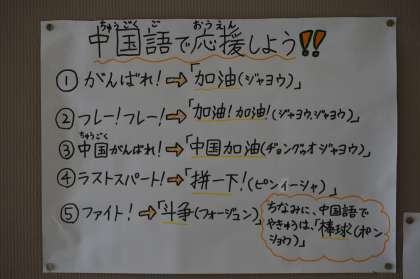 中国語で応援しよう!!
ちゅうごくご おうえん
①がんばれ!⇨「加油(ジャヨウ)」
②フレー!フレー!⇨「加油!加油!(ジャヨウ、ジャヨウ)」
ちゅうごく
③中国がんばれ!⇨「中国加油(ヂョングゥオジャヨウ)」
④ラストスパート!⇨「拼一下!(ピンイーシャ)」
⑤ファイト!⇨「斗争(フォージョン)」
ちなみに、中国語で
やきゅうは、「棒球(ポン
ショウ)」